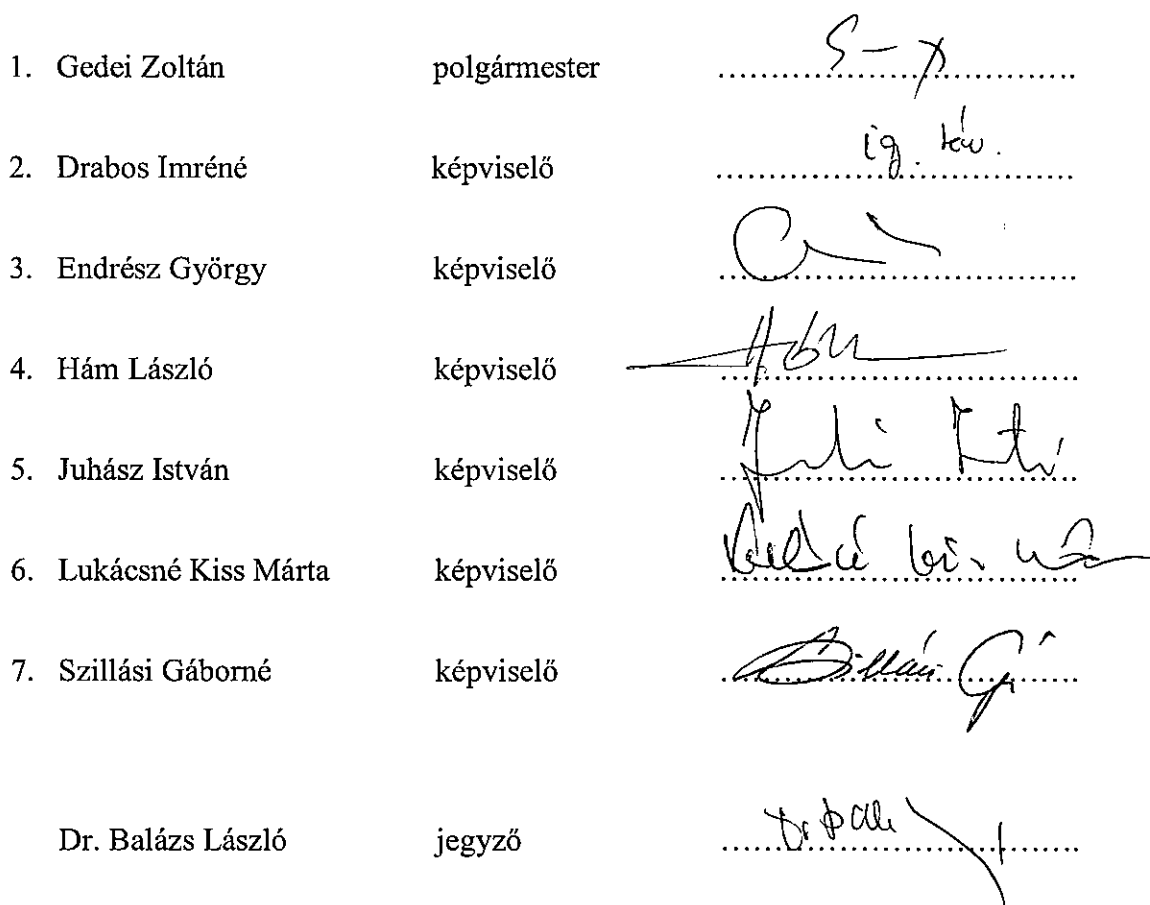 1. Gedei Zoltán polgármester
2. Drabos Imréné képviselő ig. táv.
3. Endrész György képviselő
4. Hám László képviselő
5. Juhász István képviselő
6. Lukácsné Kiss Márta képviselő
7. Szillási Gáborné képviselő
Dr. Balázs László jegyző